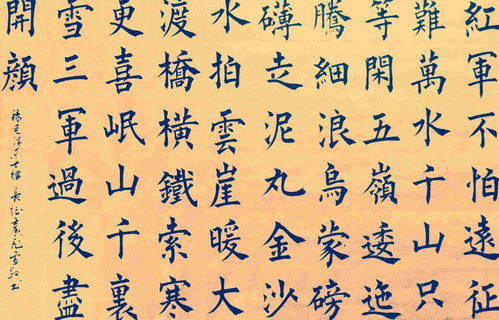 紅軍不怕遠征
難萬水千山只
等閑五嶺逶迤
騰細浪烏蒙磅
礴走泥丸金沙
水拍雲崖暖大
渡橋橫鐵索寒
更喜岷山千裏
雪三軍過後盡
開顏
毛泽东七律長征